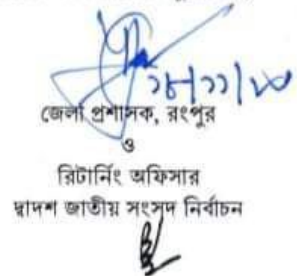 ২৮/১১/২৩
জেলা প্রশাসক, রংপুর
ও
রিটার্নিং অফিসার
দ্বাদশ জাতীয় সংসদ নির্বাচন